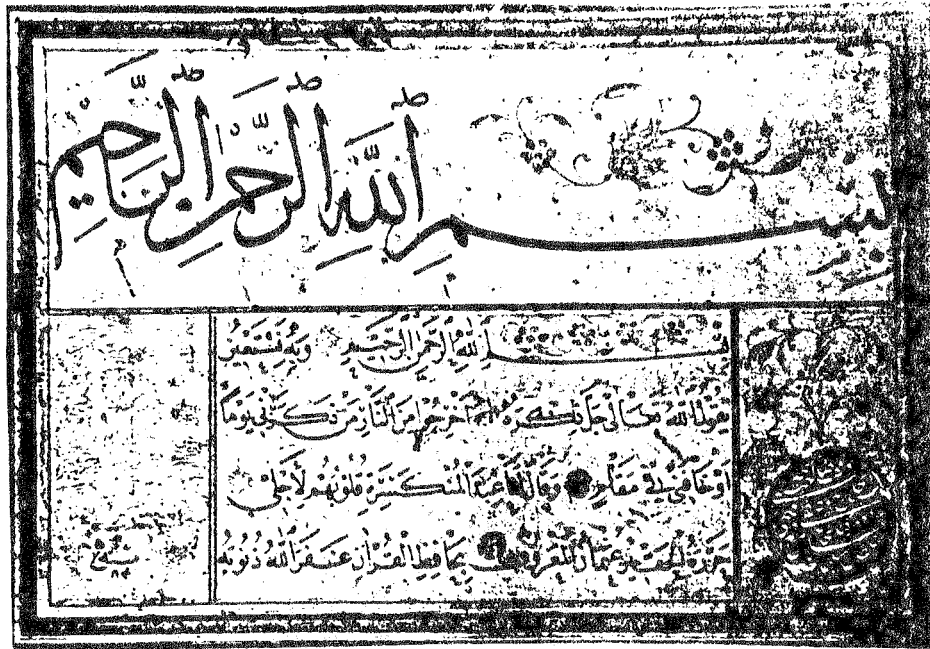 بِسْمِ اللهِ الرَّحْمٰنِ الرَّحِيمِ
بسم الله الرحمن الرحيم وبه نستعين
يقول الله تعالى جل ذكره أخرجوا من النار من ذكرني يوما
أو خافني في مقام وقال أنا عند المنكسرة قلوبهم لأجلي
الحقير عثمان المعروف بحافظ القرآن غفر الله ذنوبه